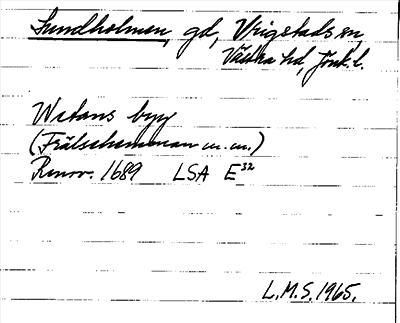 Sundholmen, gd, Vrigstads sn,
Västra hd, Jönk. l.
Wetans byy
(Frälsehemman m.m.)
Renov. 1689 LSA E³²
L.M.S. 1965.